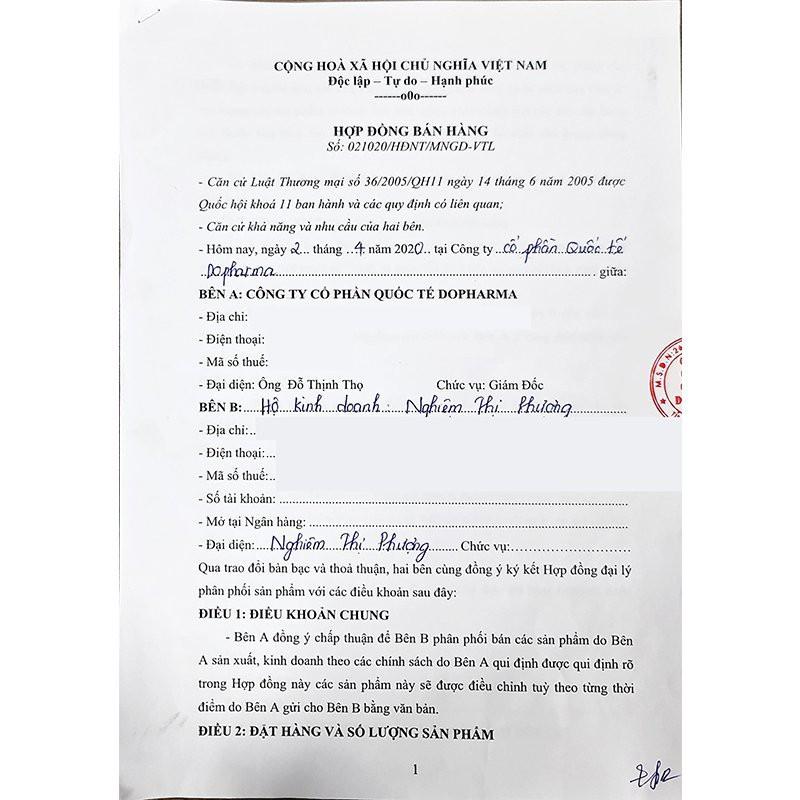 CỘNG HOÀ XÃ HỘI CHỦ NGHĨA VIỆT NAM
Độc lập – Tự do – Hạnh phúc
------o0o------
HỢP ĐỒNG BÁN HÀNG
Số: 021020/HĐNT/MNGD-VTL
- Căn cứ Luật Thương mại số 36/2005/QH11 ngày 14 tháng 6 năm 2005 được
Quốc hội khoá 11 ban hành và các quy định có liên quan;
- Căn cứ khả năng và nhu cầu của hai bên.
- Hôm nay, ngày 2 tháng 4 năm 2020 tại Công ty cổ phần Quốc tế
Dopharma giữa:
BÊN A: CÔNG TY CỔ PHẦN QUỐC TẾ DOPHARMA
- Địa chỉ:
- Điện thoại:
- Mã số thuế:
- Đại diện: Ông Đỗ Thịnh Thọ Chức vụ: Giám Đốc
BÊN B: Hộ kinh doanh: Nghiêm Thị Phương
- Địa chỉ:..
- Điện thoại:...
- Mã số thuế:..
- Số tài khoản:
- Mở tại Ngân hàng:
- Đại diện: Nghiêm Thị Phượng Chức vụ:
Qua trao đổi bàn bạc và thoả thuận, hai bên cùng đồng ý ký kết Hợp đồng đại lý
phân phối sản phẩm với các điều khoản sau đây:
ĐIỀU 1: ĐIỀU KHOẢN CHUNG
- Bên A đồng ý chấp thuận để Bên B phân phối bán các sản phẩm do Bên
A sản xuất, kinh doanh theo các chính sách do Bên A qui định được qui định rõ
trong Hợp đồng này các sản phẩm này sẽ được điều chỉnh tuỳ theo từng thời
điểm do Bên A gửi cho Bên B bằng văn bản.
ĐIỀU 2: ĐẶT HÀNG VÀ SỐ LƯỢNG SẢN PHẨM
1
M.S.D.N: